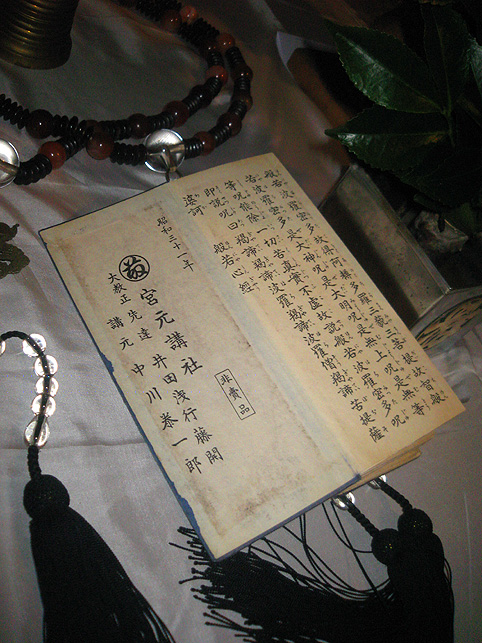 般若波羅蜜多故得阿耨多羅三藐三菩提故知般
若波羅蜜多是大神呪是大明呪是無上呪是無等
等呪能除一切苦真實不虚故説般若波羅蜜多呪
即説呪曰揭諦揭諦波羅揭諦波羅僧揭諦菩提薩
婆訶 般若心經
昭和三十一年
非賣品
宮元講社
大教正先達 井田浅行藤開
講元 中川 一郎